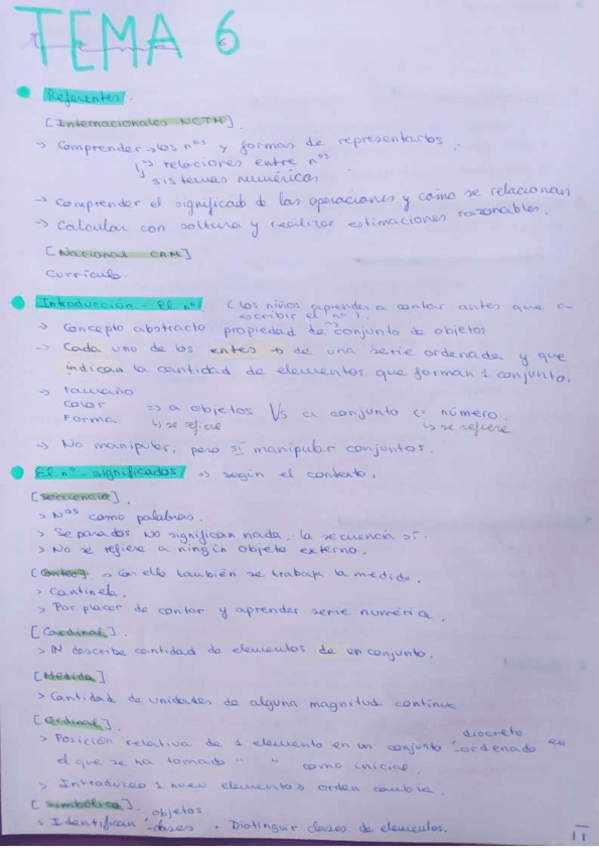 TEMA 6
Referentes.
[Internacionales NCTM].
→ Comprender → los nos y formas de representarlos.
↳ relaciones entre nos
↳ sistemas numéricos
→ Comprender el significado de las operaciones y cómo se relacionan
→ Calcular con soltura y realizar estimaciones razonables.
[Nacional CAM]
Currículo.
Introducción - El nº (los niños aprenden a contar antes que a
escribir el nº).
→ Concepto abstracto propiedad de conjunto de objetos
→ Cada uno de los entes → de una serie ordenada y que
indican la cantidad de elementos que forman 1 conjunto.
→ Tamaño
Color => a objetos Vs a conjunto (= número.
Forma ↳ se refiere ↳ se refiere
→ No manipular, pero sí manipular conjuntos.
El nº - significados → según el contexto.
[Secuencia].
> Nos como palabras.
> Separados NO significan nada, la secuencia sí.
> No se refiere a ningún objeto externo.
[Conteo] → Con ello también se trabaja la medida.
> Cantinela.
> Por placer de contar y aprender serie numérica.
[Cardinal].
> N describe cantidad de elementos de un conjunto.
[Medida]
> Cantidad de unidades de alguna magnitud continua
[Ordinal].
> Posición relativa de 1 elemento en un conjunto discreto ordenado en
el que se ha tomado " " como inicial.
> Introduzco 1 nuevo elementos orden cambia.
[Simbólica]. objetos
> Identifican clases . Distinguir clases de elementos.